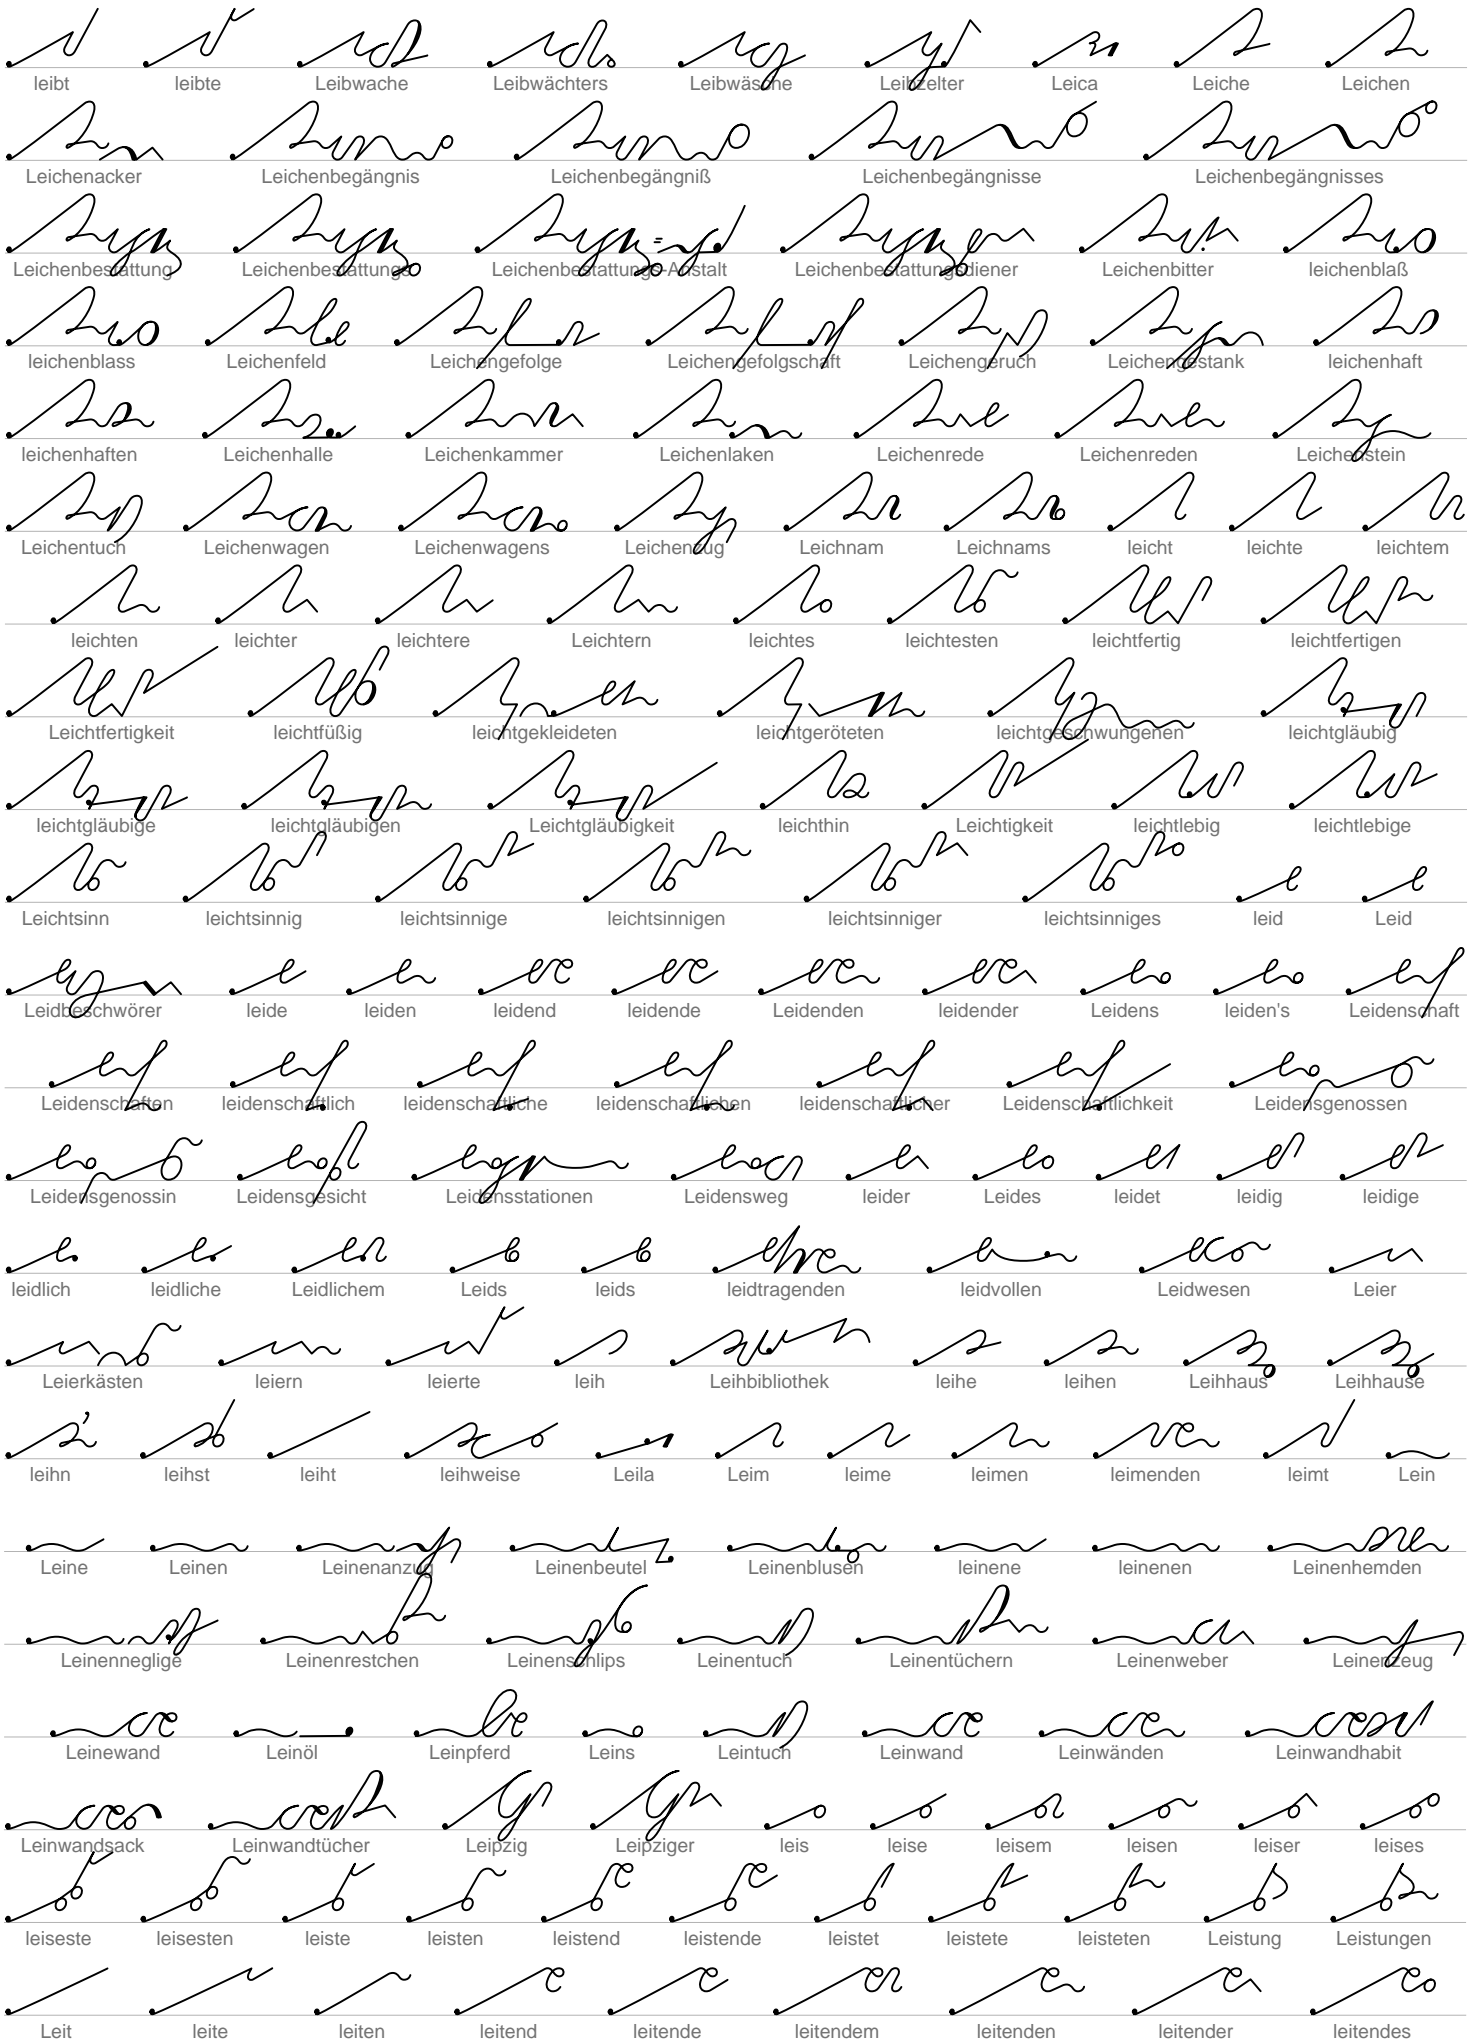 leibt leibte Leibwache Leibwächters Leibwäsche Leibzelter Leica Leiche Leichen
Leichenacker Leichenbegängnis Leichenbegängniß Leichenbegängnisse Leichenbegängnisses
Leichenbestattung Leichenbestattungs Leichenbestattungs-Anstalt Leichenbestattungsdiener Leichenbitter leichenblaß
leichenblass Leichenfeld Leichengefolge Leichengefolgschaft Leichengeruch Leichengestank leichenhaft
leichenhaften Leichenhalle Leichenkammer Leichenlaken Leichenrede Leichenreden Leichenstein
Leichentuch Leichenwagen Leichenwagens Leichenzug Leichnam Leichnams leicht leichte leichtem
leichten leichter leichtere Leichtern leichtes leichtesten leichtfertig leichtfertigen
Leichtfertigkeit leichtfüßig leichtgekleideten leichtgeröteten leichtgeschwungenen leichtgläubig
leichtgläubige leichtgläubigen Leichtgläubigkeit leichthin Leichtigkeit leichtlebig leichtlebige
Leichtsinn leichtsinnig leichtsinnige leichtsinnigen leichtsinniger leichtsinniges leid Leid
Leidbeschwörer leide leiden leidend leidende Leidenden leidender Leidens leiden's Leidenschaft
Leidenschaften leidenschaftlich leidenschaftliche leidenschaftlichen leidenschaftlicher Leidenschaftlichkeit Leidensgenossen
Leidensgenossin Leidensgesicht Leidensstationen Leidensweg leider Leides leidet leidig leidige
leidlich leidliche Leidlichem Leids leids leidtragenden leidvollen Leidwesen Leier
Leierkästen leiern leierte leih Leihbibliothek leihe leihen Leihhaus Leihhause
leihn leihst leiht leihweise Leila Leim leime leimen leimenden leimt Lein
Leine Leinen Leinenanzug Leinenbeutel Leinenblusen leinene leinenen Leinenhemden
Leinenneglige Leinenrestchen Leinenschlips Leinentuch Leinentüchern Leinenweber Leinenzeug
Leinewand Leinöl Leinpferd Leins Leintuch Leinwand Leinwänden Leinwandhabit
Leinwandsack Leinwandtücher Leipzig Leipziger leis leise leisem leisen leiser leises
leiseste leisesten leiste leisten leistend leistende leistet leistete leisteten Leistung Leistungen
Leit leite leiten leitend leitende leitendem leitenden leitender leitendes